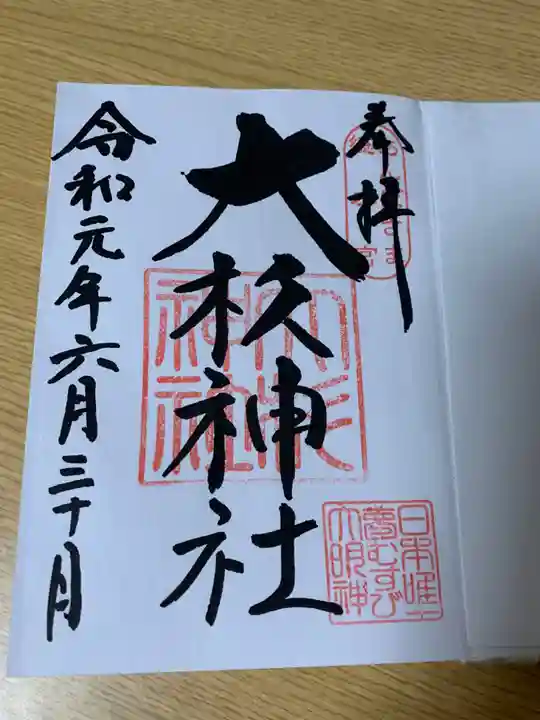 奉拝
大杉神社
令和元年六月三十月
日本唯一
夢むすび
大明神
大杉
神社